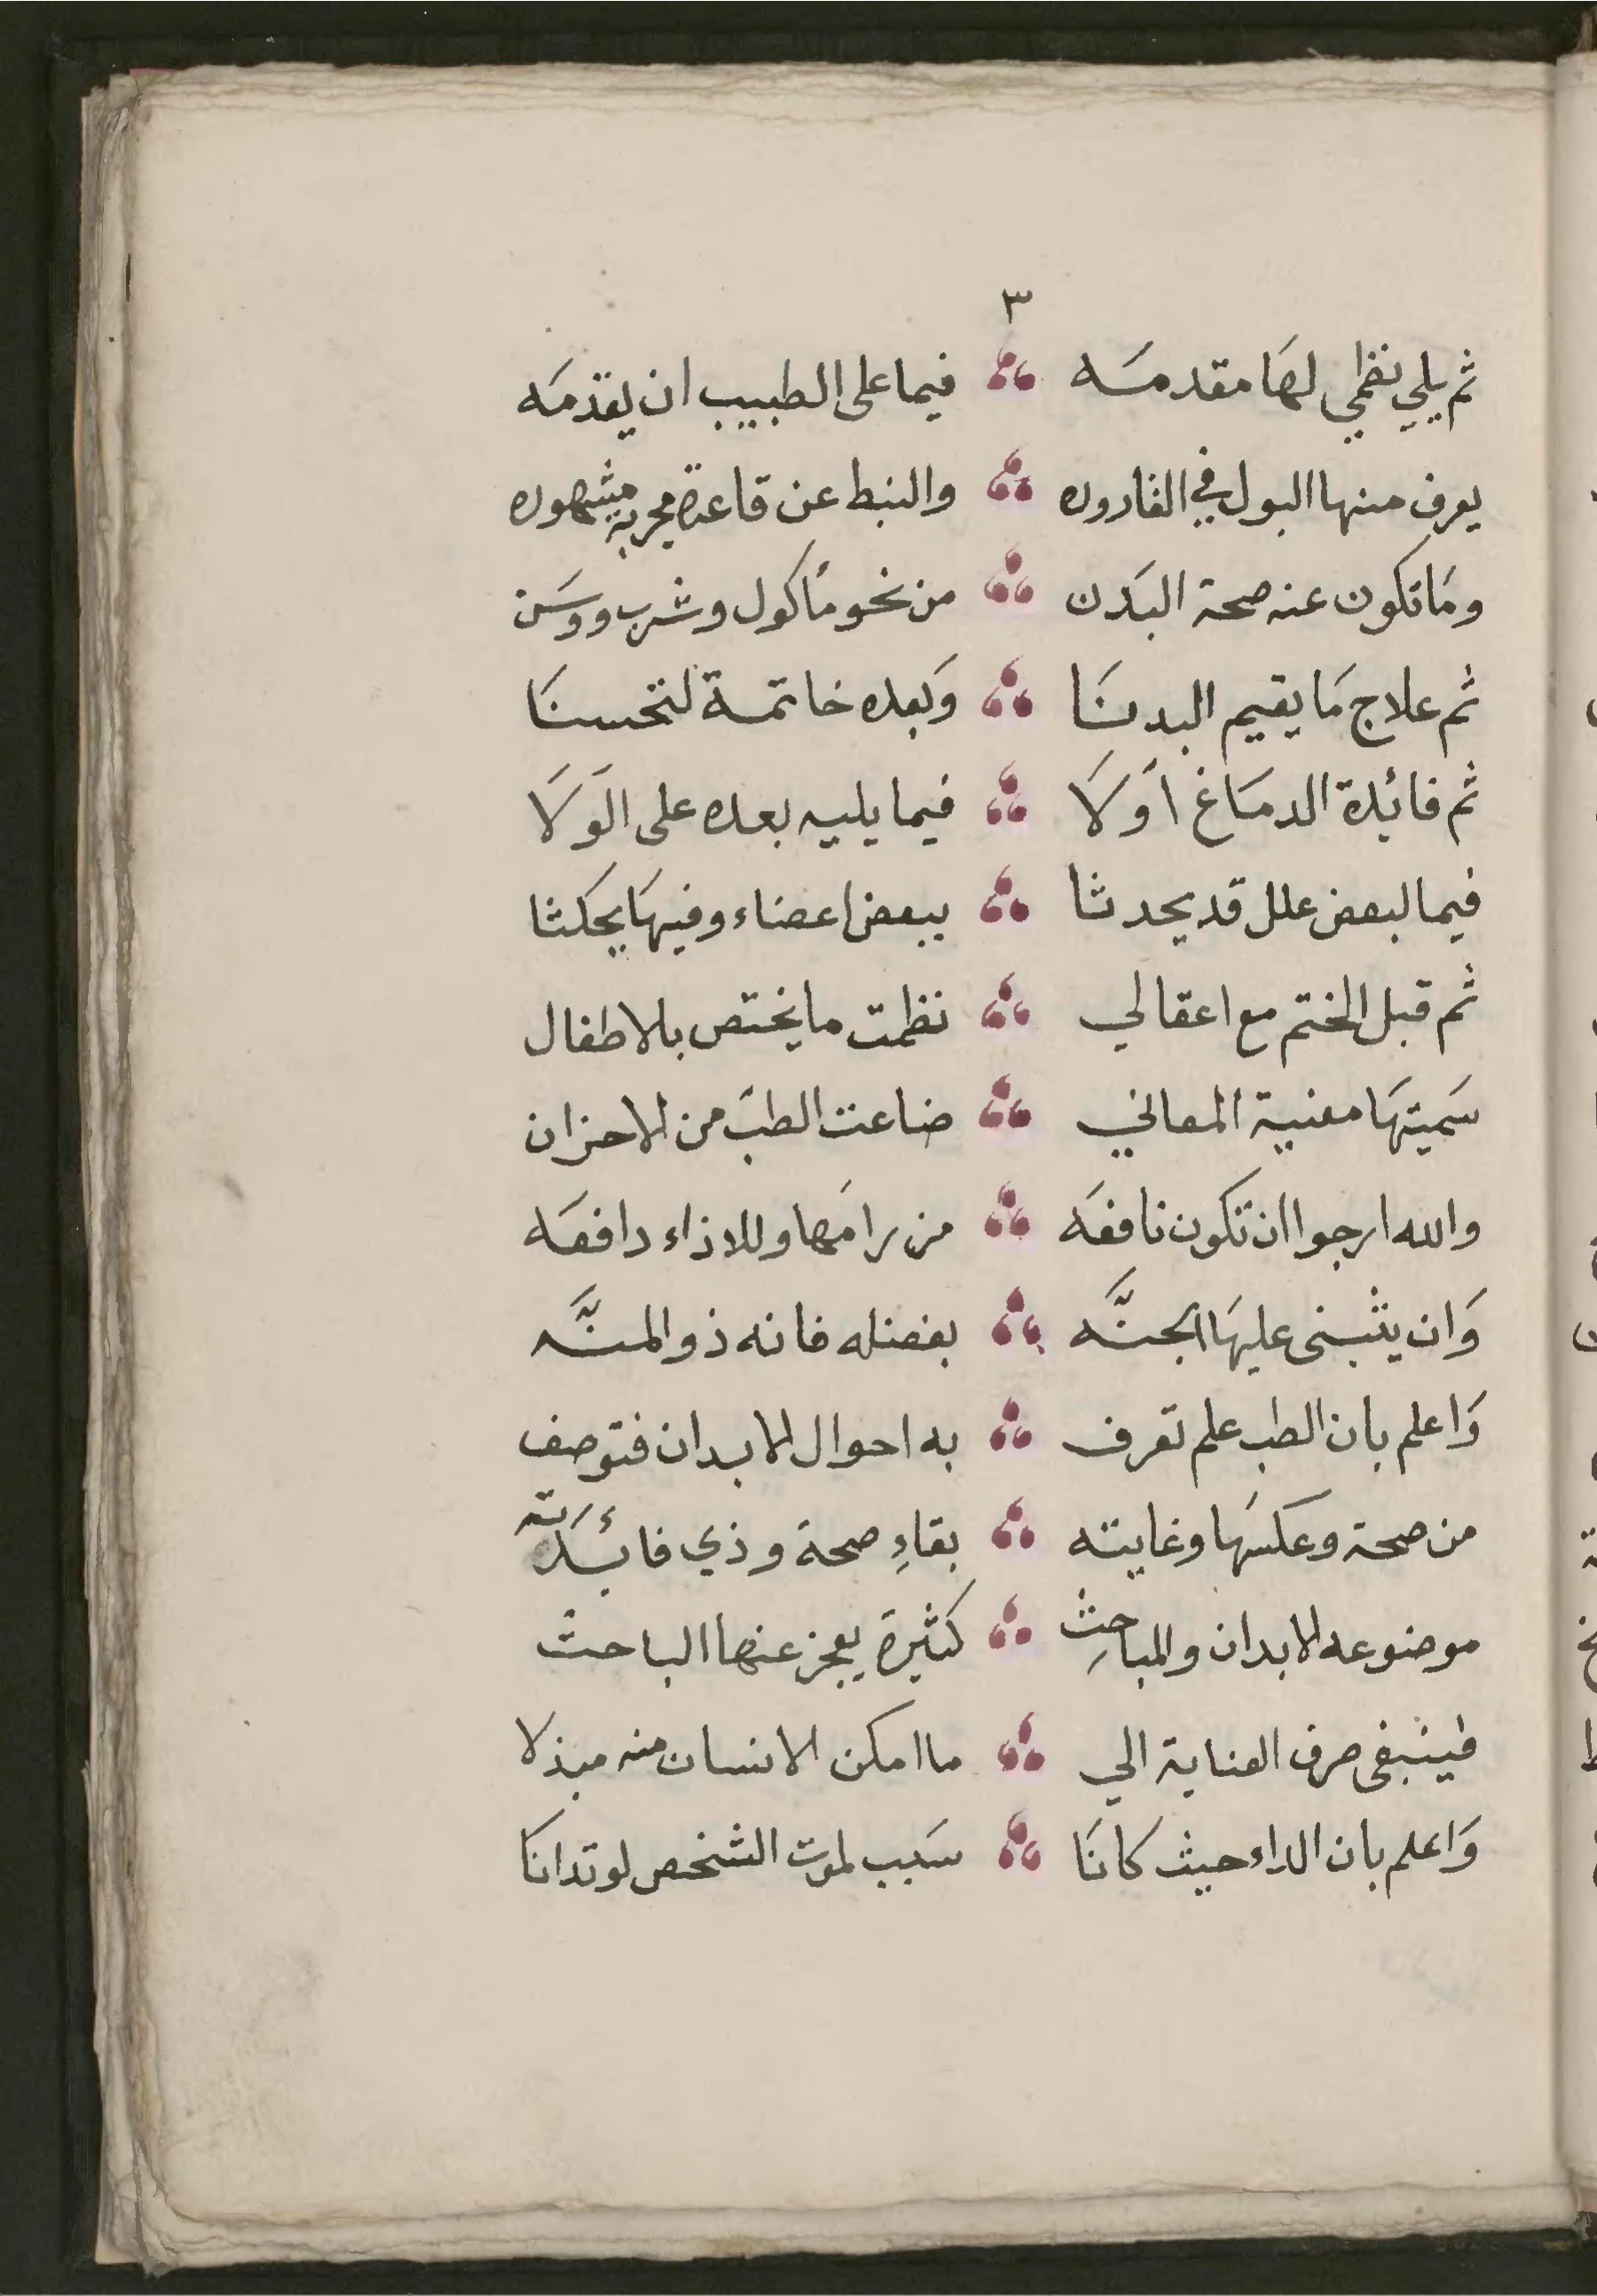 ٣
ثم يلي نظمي لهَا مقدمَه فيما على الطبيب ان يقدمَه
يعرف منها البول في القاروره والنبط عن قاعدة مجربة مشهوره
ومَا تكون عنه صحة البَدن من نحو مَأكول وشرب ووسَن
ثم علاج مَا يقيم البدنَا وَبعده خاتمة لتحسنَا
ثم فائدة الدمَاغ اوَلَا فيما يليه بعده على الوَلَا
فيما لبعض علل قد يحدثا ببعض اعضاء وفيهَا يحكثا
ثم قبل الختم مع اعقالي نظمت ما يختص بالاطفال
سَميتهَا مغنية المعاني ضاعت الطبَ من الاحزان
والله ارجوا ان تكون نافعَه من رامَها وللاذاء دافعَه
وَان يثبنى عليهَا الجنَّه بفضله فانه ذو المنَّه
وَاعلم بان الطب علم تعرف به احوال الابدان فتوصف
من صحة وعكسَها وغايته بقاءِ صحة وذي فائدَته
موضوعه الابدان والمباحِث كثيرة يعجز عنها الباحث
فينبغى صرف العناية الي ما امكن الانسان منه مبذلا
وَاعلم بان الداء حيث كانَا سَبب لموت الشخص لو تدانَا